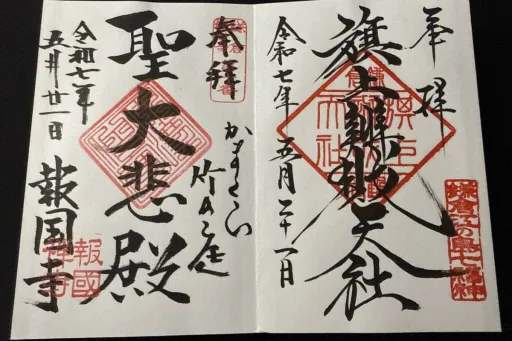 奉拝
旗上辨財天社
令和七年五月二十一日
鎌倉江の島七福神
奉拝
かまくら
竹の庭
聖大悲殿
令和七年
五月廿一日
報国寺
報國